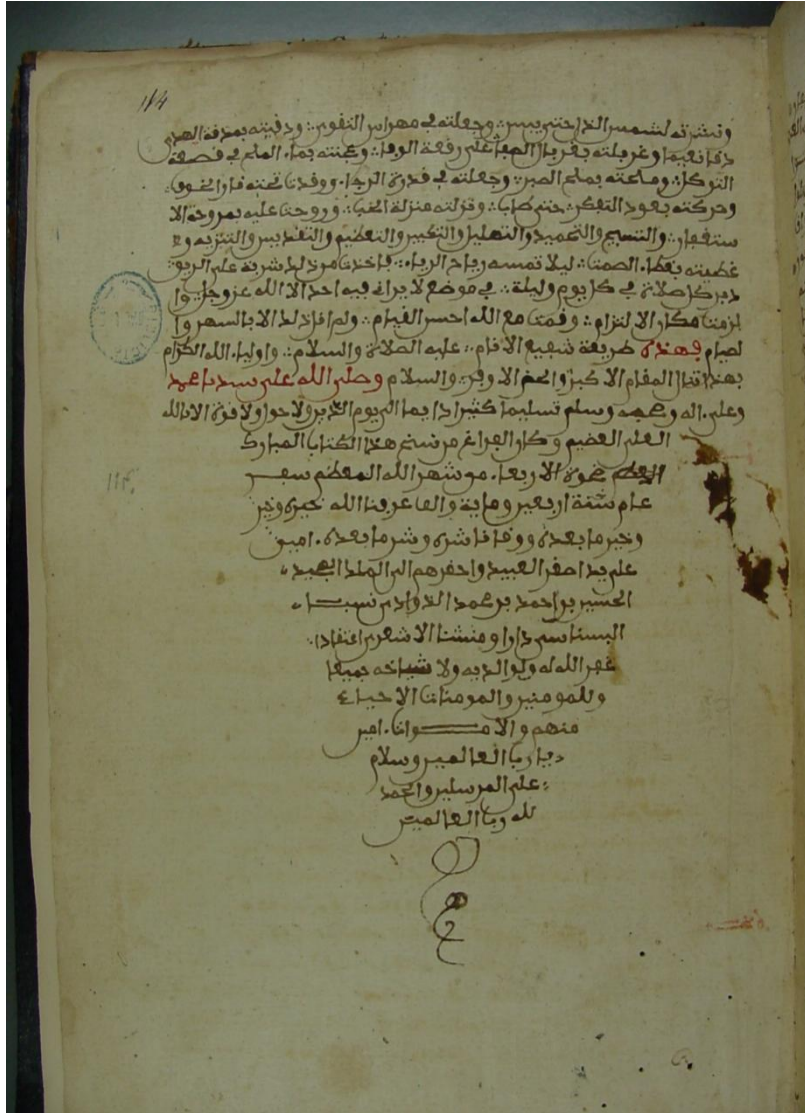 114
ونشرته لشمس الذل حتى يبس وجعلته في مهراس التقوى ودقيته بمدقة الهدى
دقا نعيما وغربلته بغربال الصفا على رقعة الوفا وعجنته بماء الحلم في قصعة
التوكل وملحته بملح الصبر وجعلته في قدرة الرجا ووقدت تحته نار الخوف
وحركته بعود التفكر حتى طاب ونزلته منزلة وروحت عليه بمروحة الا
ستغفار والتسبيح والتحميد والتهليل والتكبير والتعظيم والتقديس والتنزيه و
غطيته بغطاء الصمت ليلا تمسه رياح الرياء فاخذت من ذلك شربة على الريق
دبر كل صلاة في كل يوم وليلة في موضع لا يراني فيه احد الا الله عز وجل وا
لزمت مكان الالتزام وقمت مع الله احسن القيام ولم انل ذلك الا بالسهر وا
لصيام فهذه طريقة شفيع الانام عليه الصلاة والسلام واولياء الله الكرام
بهذا تنال المقام الاكبر والحظ الاوفر والسلام وصلى الله على سيدنا محمد
وعلى اله وصحبه وسلم تسليما كثيرا دايما الى يوم الدين ولا حول ولا قوة الا بالله
العلي العظيم وكان الفراغ من نسخ هذا الكتاب المبارك
ضحوة الاربعاء من شهر الله المعظم
عام ستة اربعين وماية والف عرفنا الله خيره وخير
وخير ما بعده ووقانا شره وشر ما بعده امين
على يد اصغر العبيد واحقرهم الى الملك المجيد
الحسين بن احمد بن محمد نسبا
دارا ومنشئا الاشعري اعتقادا
غفر الله له ولوالديه ولاشياخه جميعا
وللمومنين والمومنات الاحياء
منهم والاموات امين
يا رب العالمين وسلام
على المرسلين والحمد
لله رب العالمين